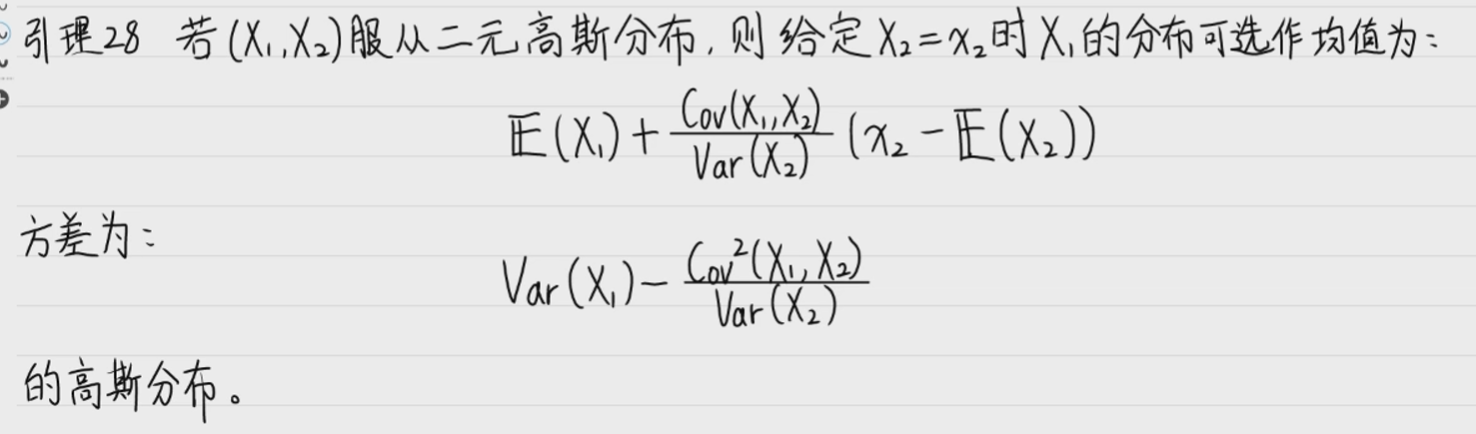 引理28 若(X₁,X₂)服从二元高斯分布,则给定X₂=x₂时X₁的分布可选作均值为:
𝔼(X₁)+\frac{Cov(X₁,X₂)}{Var(X₂)}(x₂-𝔼(X₂))
方差为:
Var(X₁)-\frac{Cov²(X₁,X₂)}{Var(X₂)}
的高斯分布。